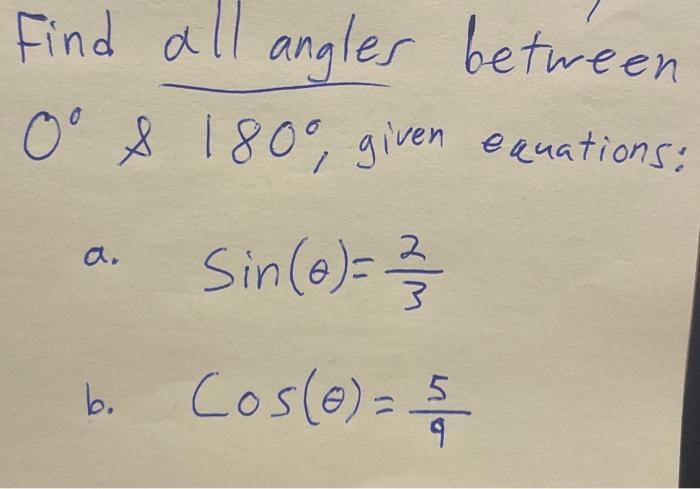 Find all angles between
0° & 180°, given equations:
a. Sin(θ)= 2/3
b. Cos(θ)= 5/9